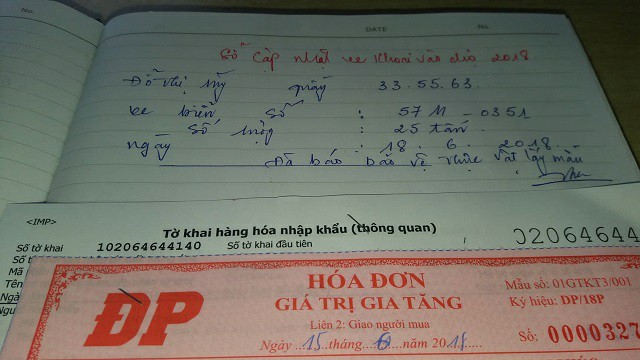 No.
DATE No.
Sổ cập nhật xe Khoai vào dio 2018
Đỗ thị mỹ mây 33.55.63.
xe biển số : 57M - 0351
Số lượng : 25 tấn.
ngày : 18. 6. 2018.
Đã báo bảo vệ thực vật lấy mẫu
<IMP>
Tờ khai hàng hóa nhập khẩu (thông quan)
Số tờ khai 102064644140 Số tờ khai đầu tiên
0206464
Số
Mã
Tên
Ngà
ĐP
HÓA ĐƠN
GIÁ TRỊ GIA TĂNG
Liên 2: Giao người mua
Ngày 15 tháng 6 năm 2018
Mẫu số: 01GTKT3/001
Ký hiệu: ĐP/18P
Số: 0000327